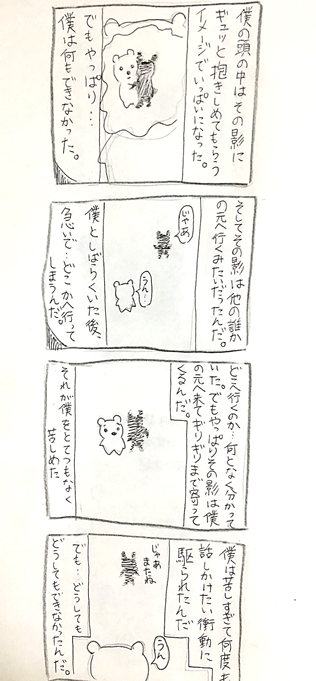 僕の頭の中はその影に
ギュッと抱きしめてもらう
イメージでいっぱいになった。
でもやっぱり・・
僕は何もできなかった。
そしてその影は他の誰か
の元へ行くみたいだったんだ。
じゃあ
うん…
僕としばらくいた後、
急いで…どこかへ行って
しまうんだ。
どこへ行くのか…何となく分かって
いた。でもやっぱりその影は僕
の元へ来てギリギリまで寄って
くるんだ。
それが僕をとてつもなく
苦しめた
僕は苦しすぎて何度も
話しかけたい衝動に
駆られたんだ
じゃあ
またね
うん
でも…どうしても
どうしてもできなかったんだ。